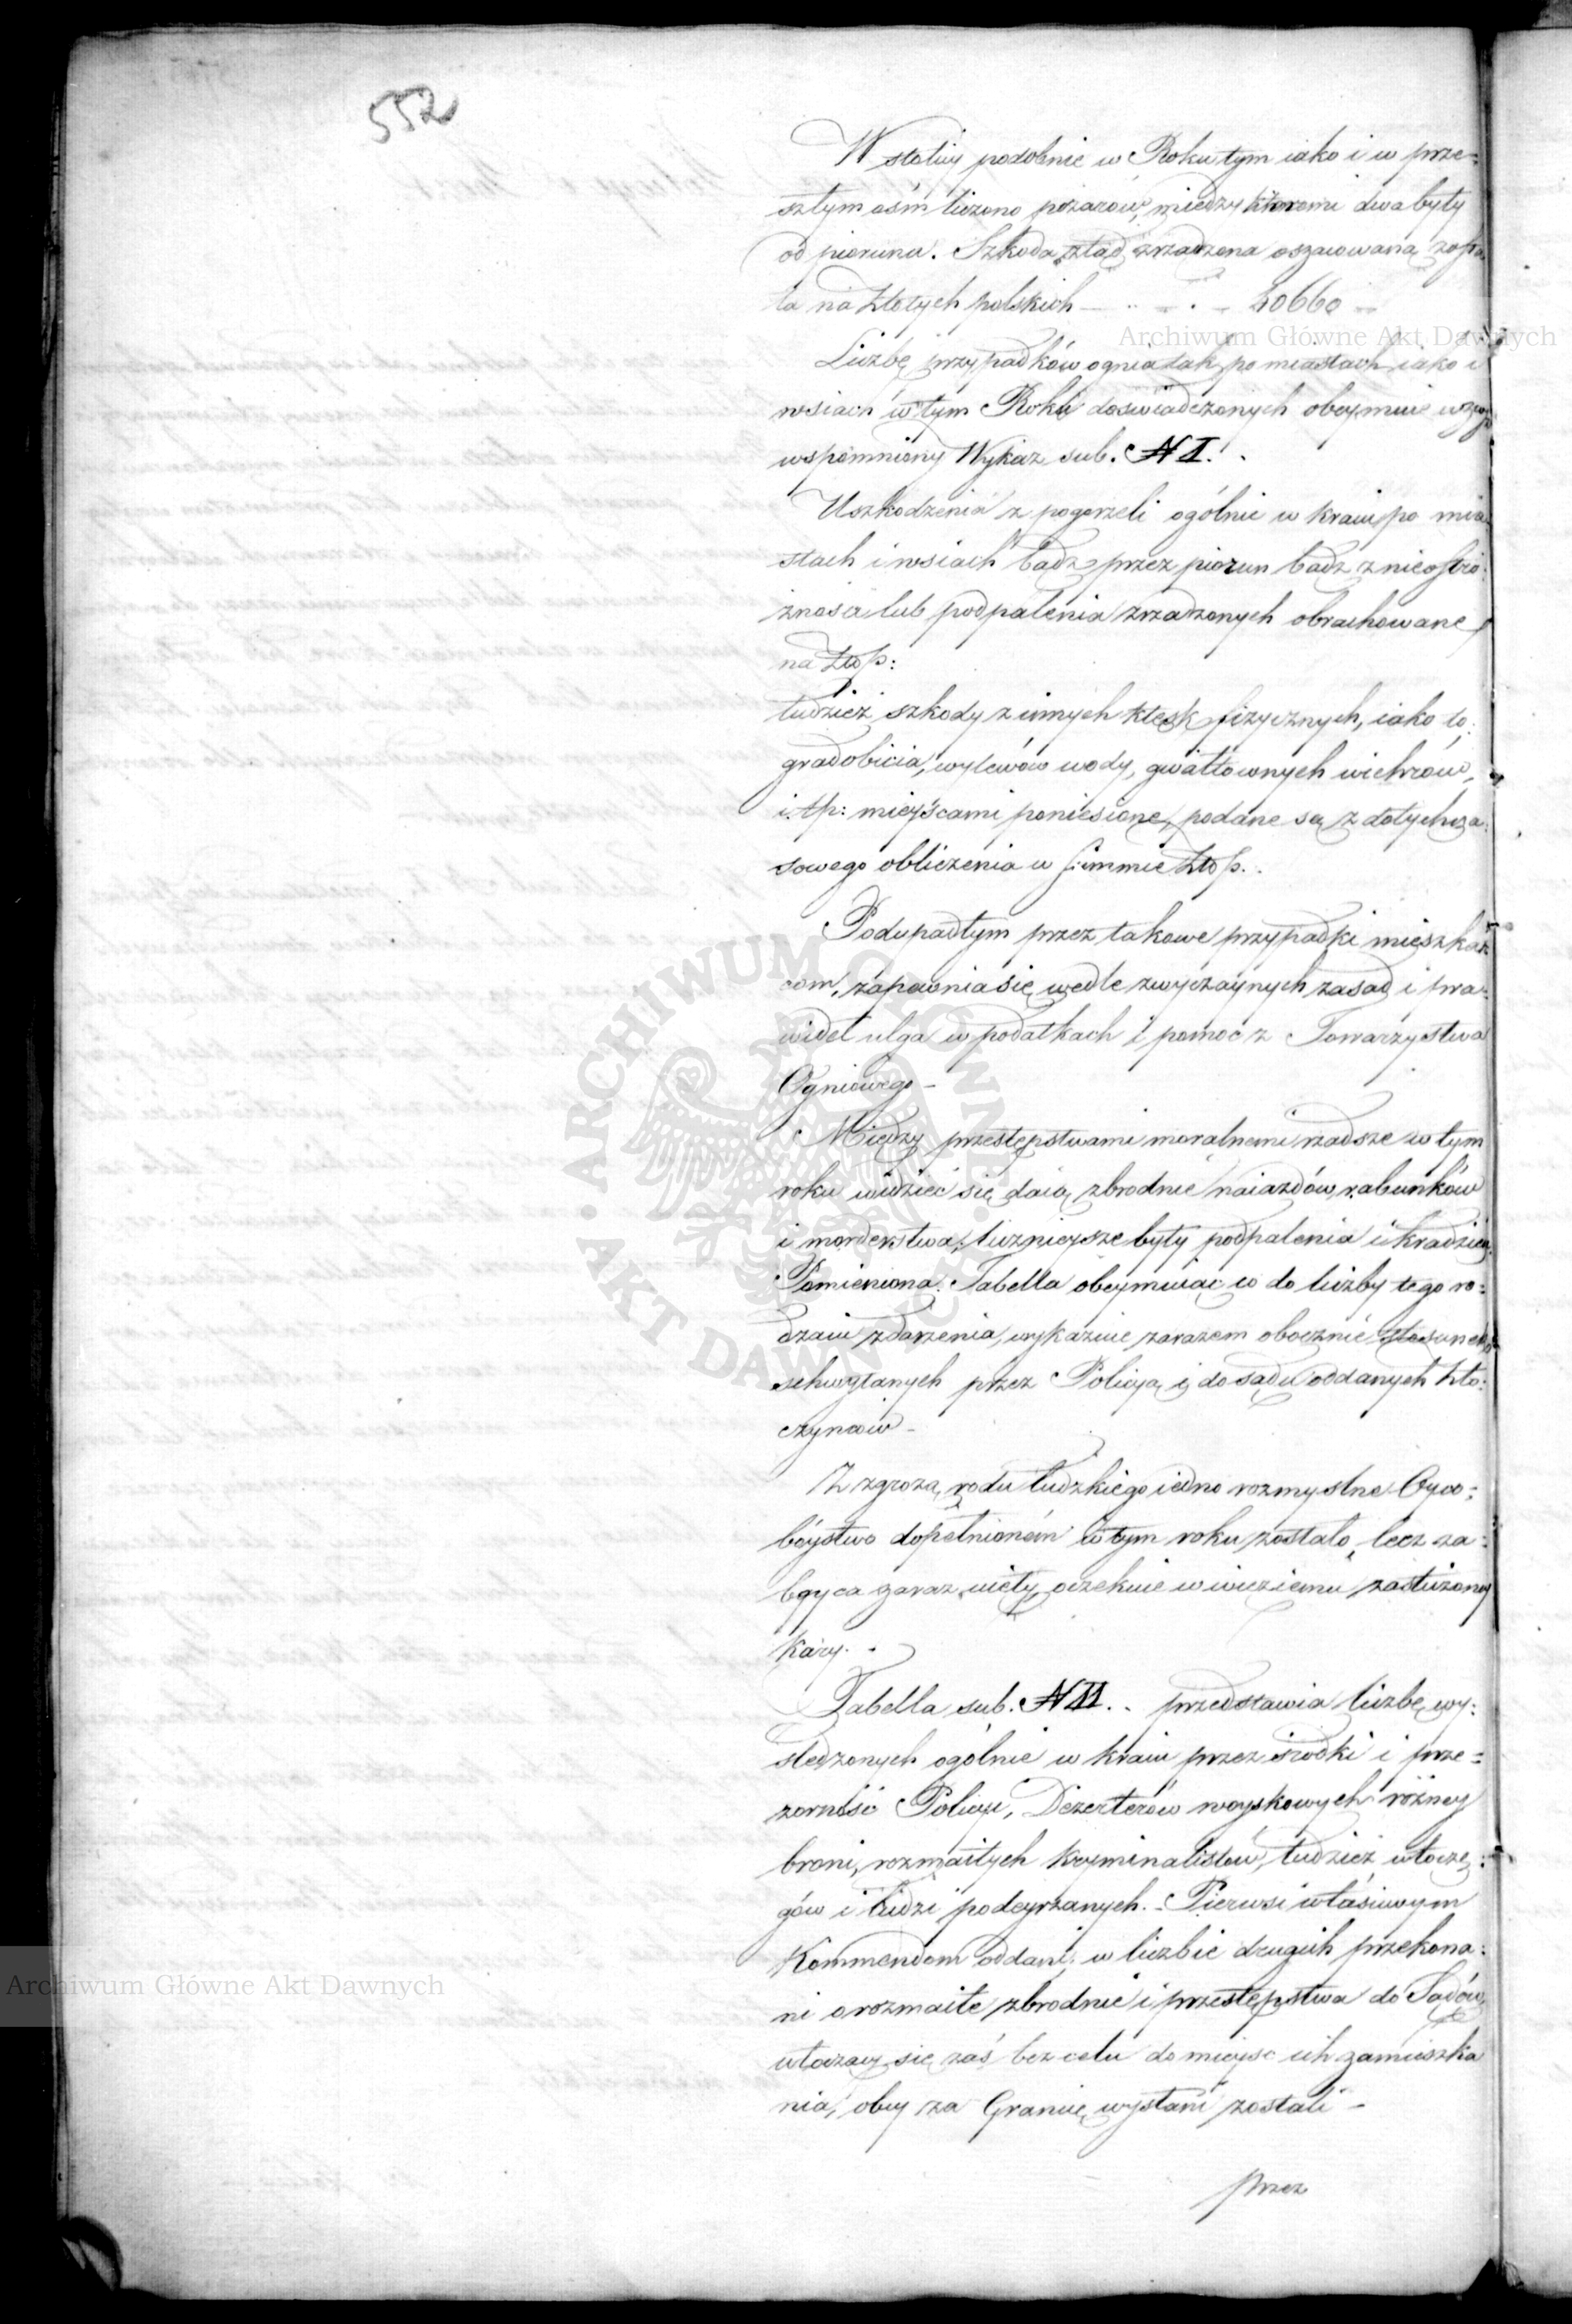 552
W stolicy podobnie w Roku tym iako i w prze=
szłym ośm liczono pożarów, między któremi dwa były
od pioruna. Szkoda ztąd zrządzona oszacowaną zosta
ła na Złotych polskich — 40660 —
Archiwum Główne Akt Dawnych
Liczbę przypadków ognia tak po miastach iako i
wsiach w tym Roku doświadczonych obeymuie wyżey
wspomniony Wykaz sub. N I.
Uszkodzenia z pogorzeli ogólnie w kraiu po mia
stach i wsiach bądź przez piorun bądź z nieostro:
żności lub podpalenia zrządzonych obrachowane
na Złp:
tudzież szkody z innych klęsk fizycznych, iako to:
gradobicia, wylewów wody, gwałtownych wichrów,
i.t.p: mieyscami poniesione, podane są z dotychcza:
sowego obliczenia w summie Złp.
Podupadłym przez takowe przypadki mieszkań
com, zapewnia się wedle zwyczaynych zasad i pra:
wideł ulga w podatkach i pomoc z Towarzystwa
Ogniowego —
Między przestępstwami moralnemi rzadsze w tym
roku widzieć się daią zbrodnie naiazdów, rabunków
i morderstwa, licznieysze były podpalenia i kradzieży.
Pomieniona Tabella obeymuiąc co do liczby tego ro:
dzaiu zdarzenia, wykazuie zarazem obocznie stosunek
schwytanych przez Policyą i do sądu oddanych Zło:
czyńców —
Z zgrozą rodu ludzkiego iedno rozmyślne Oyco:
bóystwo dopełnioném w tym roku zostało, lecz za:
bóyca zaraz uięty, oczekuie w więzieniu zasłużoney
kary.
Tabella sub. N II. przedstawia liczbę wy:
śledzonych ogólnie w kraiu przez środki i prze=
zorność Policyi, Dezerterów woyskowych różney
broni, rozmaitych kryminalistów, tudzież włóczę:
gów i ludzi podeyrzanych. Pierwsi właściwym
Kommendom oddani, w liczbie drugich przekona:
ni o rozmaite zbrodnie i przestępstwa do Sądów,
włóczący się zaś bez celu do mieysc ich zamieszka
nia, obcy za Granicę wysłani zostali —
przez
Archiwum Główne Akt Dawnych
ARCHIWUM GŁÓWNE AKT DAWNYCH